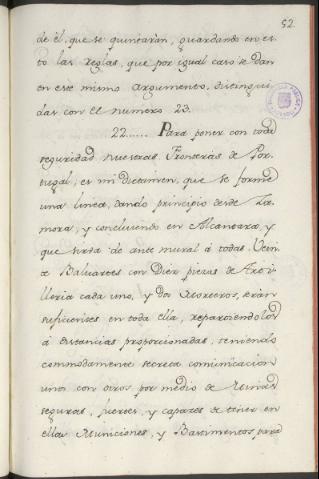 52.
de él, que se quintarán, guardando en es-
to las reglas, que por igual caso se dan
en este mismo argumento, distingui-
das con el numero 23.
22...... Para poner con toda
seguridad nuestras Fronteras de Por-
tugal, es mi dictamen, que se forme
una linea, dando principio desde Za-
mora, y concluyendo en Alcantara, y
que sirva de ante mural á todas. Vein-
te Baluartes con Diez piezas de Arti-
lleria cada uno, y dos Morteros, serán
suficientes en toda ella, repartiendolos
á distancias proporcionadas, teniendo
commodamente secreta comunicacion
unos con otros por medio de Minas
seguras, fuertes, y capaces de tener en
ellas Municiones, y Bastimentos para